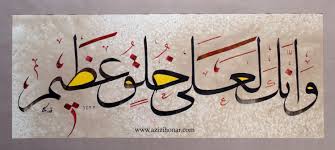 وَإِنَّكَ لَعَلَىٰ خُلُقٍ عَظِيمٍ
www.azizihonar.com